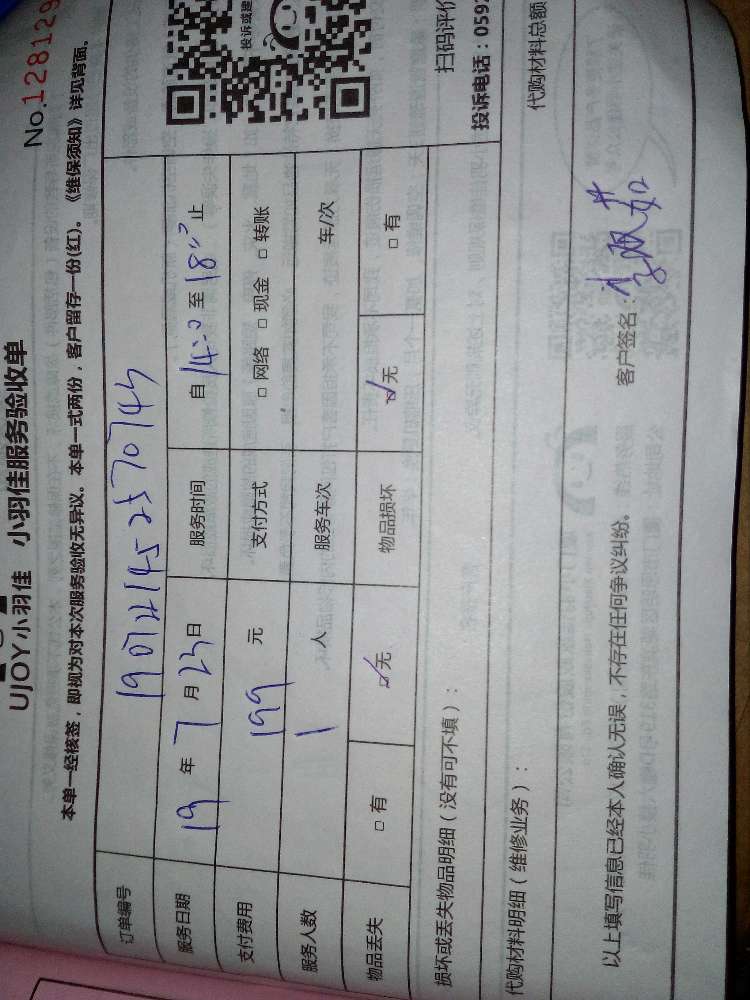 No.128129
UJOY小羽佳 小羽佳服务验收单
本单一经核签，即视为对本次服务验收无异议。本单一式两份，客户留存一份(红)。《维保须知》详见背面。
订单编号 190721452570743
服务日期 19 年 7 月 23 日 服务时间 自 14:00 至 18:00 止
支付费用 199 元 支付方式 □ 网络 □ 现金 □ 转账
服务人数 1 人 服务车次 车/次
物品丢失 □ 有 ☑ 无 物品损坏 ☑ 无 □ 有
投诉或建
扫码评价
投诉电话：059
损坏或丢失物品明细（没有可不填）：
代购材料明细（维修业务）： 代购材料总额
以上填写信息已经本人确认无误，不存在任何争议纠纷。 客户签名：